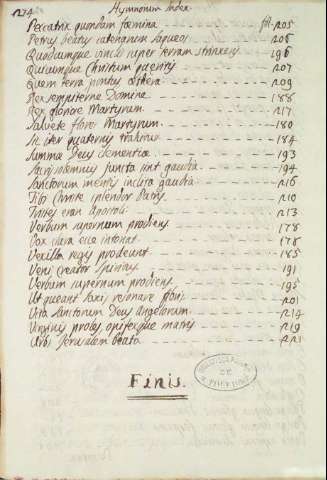 Hymnorum Index.
Peccatrix quondam fœmina fol. 205
Petrus beatus catenarum laqueos 206
Quodcumque vinclis super terram strinxeris 196
Quicumque Christum quæritis 207
Quem terra pontus sthera 209
Rex sempiterne Domine 188
Rex gloriose Martyrum 217
Salvete flores Martyrum 180
Sic ter quaternis trahitur 184
Summæ Deus clementiæ 193
Sacris solemniis juncta sint gaudia 194
Sanctorum meritis inclita gaudia 216
Tibi Christe splendor Patris 210
Tristes erant Apostoli 213
Verbum supernum prodiens 178
Vox clara ecce intonat 178
Vexilla regis prodeunt 185
Veni creator Spiritus 191
Verbum supernum prodiens 195
Ut queant laxis resonare fibris 201
Vita Sanctorum Deus Angelorum 214
Virginis proles, opifexque matris 219
Urbs Jerusalem beata 221
Finis.